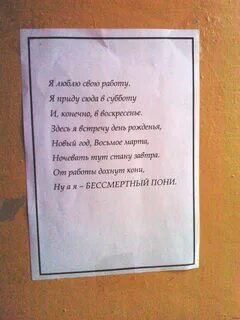 Я люблю свою работу.
Я приду сюда в субботу
И, конечно, в воскресенье.
Здесь я встречу день рожденья,
Новый год, Восьмое марта,
Ночевать тут стану завтра.
От работы дохнут кони,
Ну а я – БЕССМЕРТНЫЙ ПОНИ.